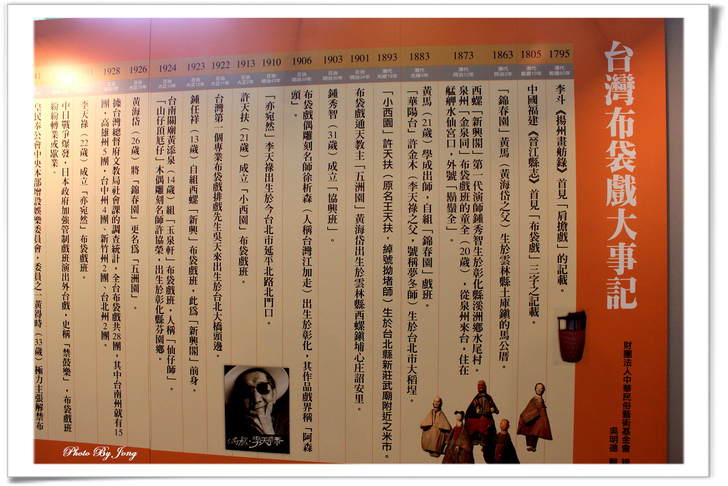 台灣布袋戲大事記
財團法人中華民俗藝術基金會
吳明德
1795
清代
乾隆60年
李斗《揚州畫舫錄》首見「肩擔戲」的記載。
1805
清代
嘉慶10年
中國福建《晉江縣志》首見「布袋戲」三字之記載。
1863
清代
同治2年
「錦春園」黃馬（黃海岱之父）生於雲林縣土庫鎮的馬公厝。
1873
清代
同治12年
西螺「新興閣」第一代演師鍾秀智生於彰化縣溪洲鄉水尾村。
泉州「金泉同」布袋戲班的童全（20歲），從泉州來台，住在
艋舺水仙宮口，外號「鬍鬚全」。
1883
清代
光緒9年
黃馬（21歲）學成出師，自組「錦春園」戲班。
「華陽台」許金木（李天祿之父，號稱夢冬師）生於台北市大稻埕。
1893
清代
光緒19年
「小西園」許天扶（原名王天扶，綽號拗堵師）生於台北縣新莊武廟附近之米市。
1901
日治
明治34年
布袋戲通天教主「五洲園」黃海岱出生於雲林縣西螺鎮埔心庄詔安里。
1903
日治
明治36年
鍾秀智（31歲）成立「協興班」。
1906
日治
明治39年
布袋戲戲偶雕刻名師徐析森（人稱台灣江加走）出生於彰化，其作品戲界稱「阿森
頭」。
1910
日治
明治43年
「亦宛然」李天祿出生於今台北市延平北路北門口。
1913
日治
大正2年
許天扶（21歲）成立「小西園」布袋戲班。
1922
日治
大正11年
台灣第一個專業布袋戲排戲先生吳天來出生於台北大橋頭邊。
1923
日治
大正12年
鍾任祥（13歲）自組西螺「新興」布袋戲班，此為「新興閣」前身。
1924
日治
大正13年
台南關廟黃添泉（14歲）組「玉泉軒」布袋戲班，人稱「仙仔師」。
「山仔頂尪仔」木偶雕刻名師許協榮，出生於彰化縣芬園鄉。
1926
日治
黃海岱（26歲）將「錦春園」更名為「五洲園」。
1928
日治
據台灣總督府文教局社會課的調查統計，全台布袋戲共28團，其中台南州就有15
團、高雄州5團、台中州4團、新竹州2團、台北州2團。
李天祿（22歲）成立「亦宛然」布袋戲班。
中日戰爭爆發，日本政府加強管制戲班演出外台戲，史稱「禁鼓樂」，布袋戲班
紛紛轉業或歇業。
41
皇民奉公會中央本部增設娛樂委員會，委員之一黃得時（33歲）極力主張解禁布
Photo By Jong